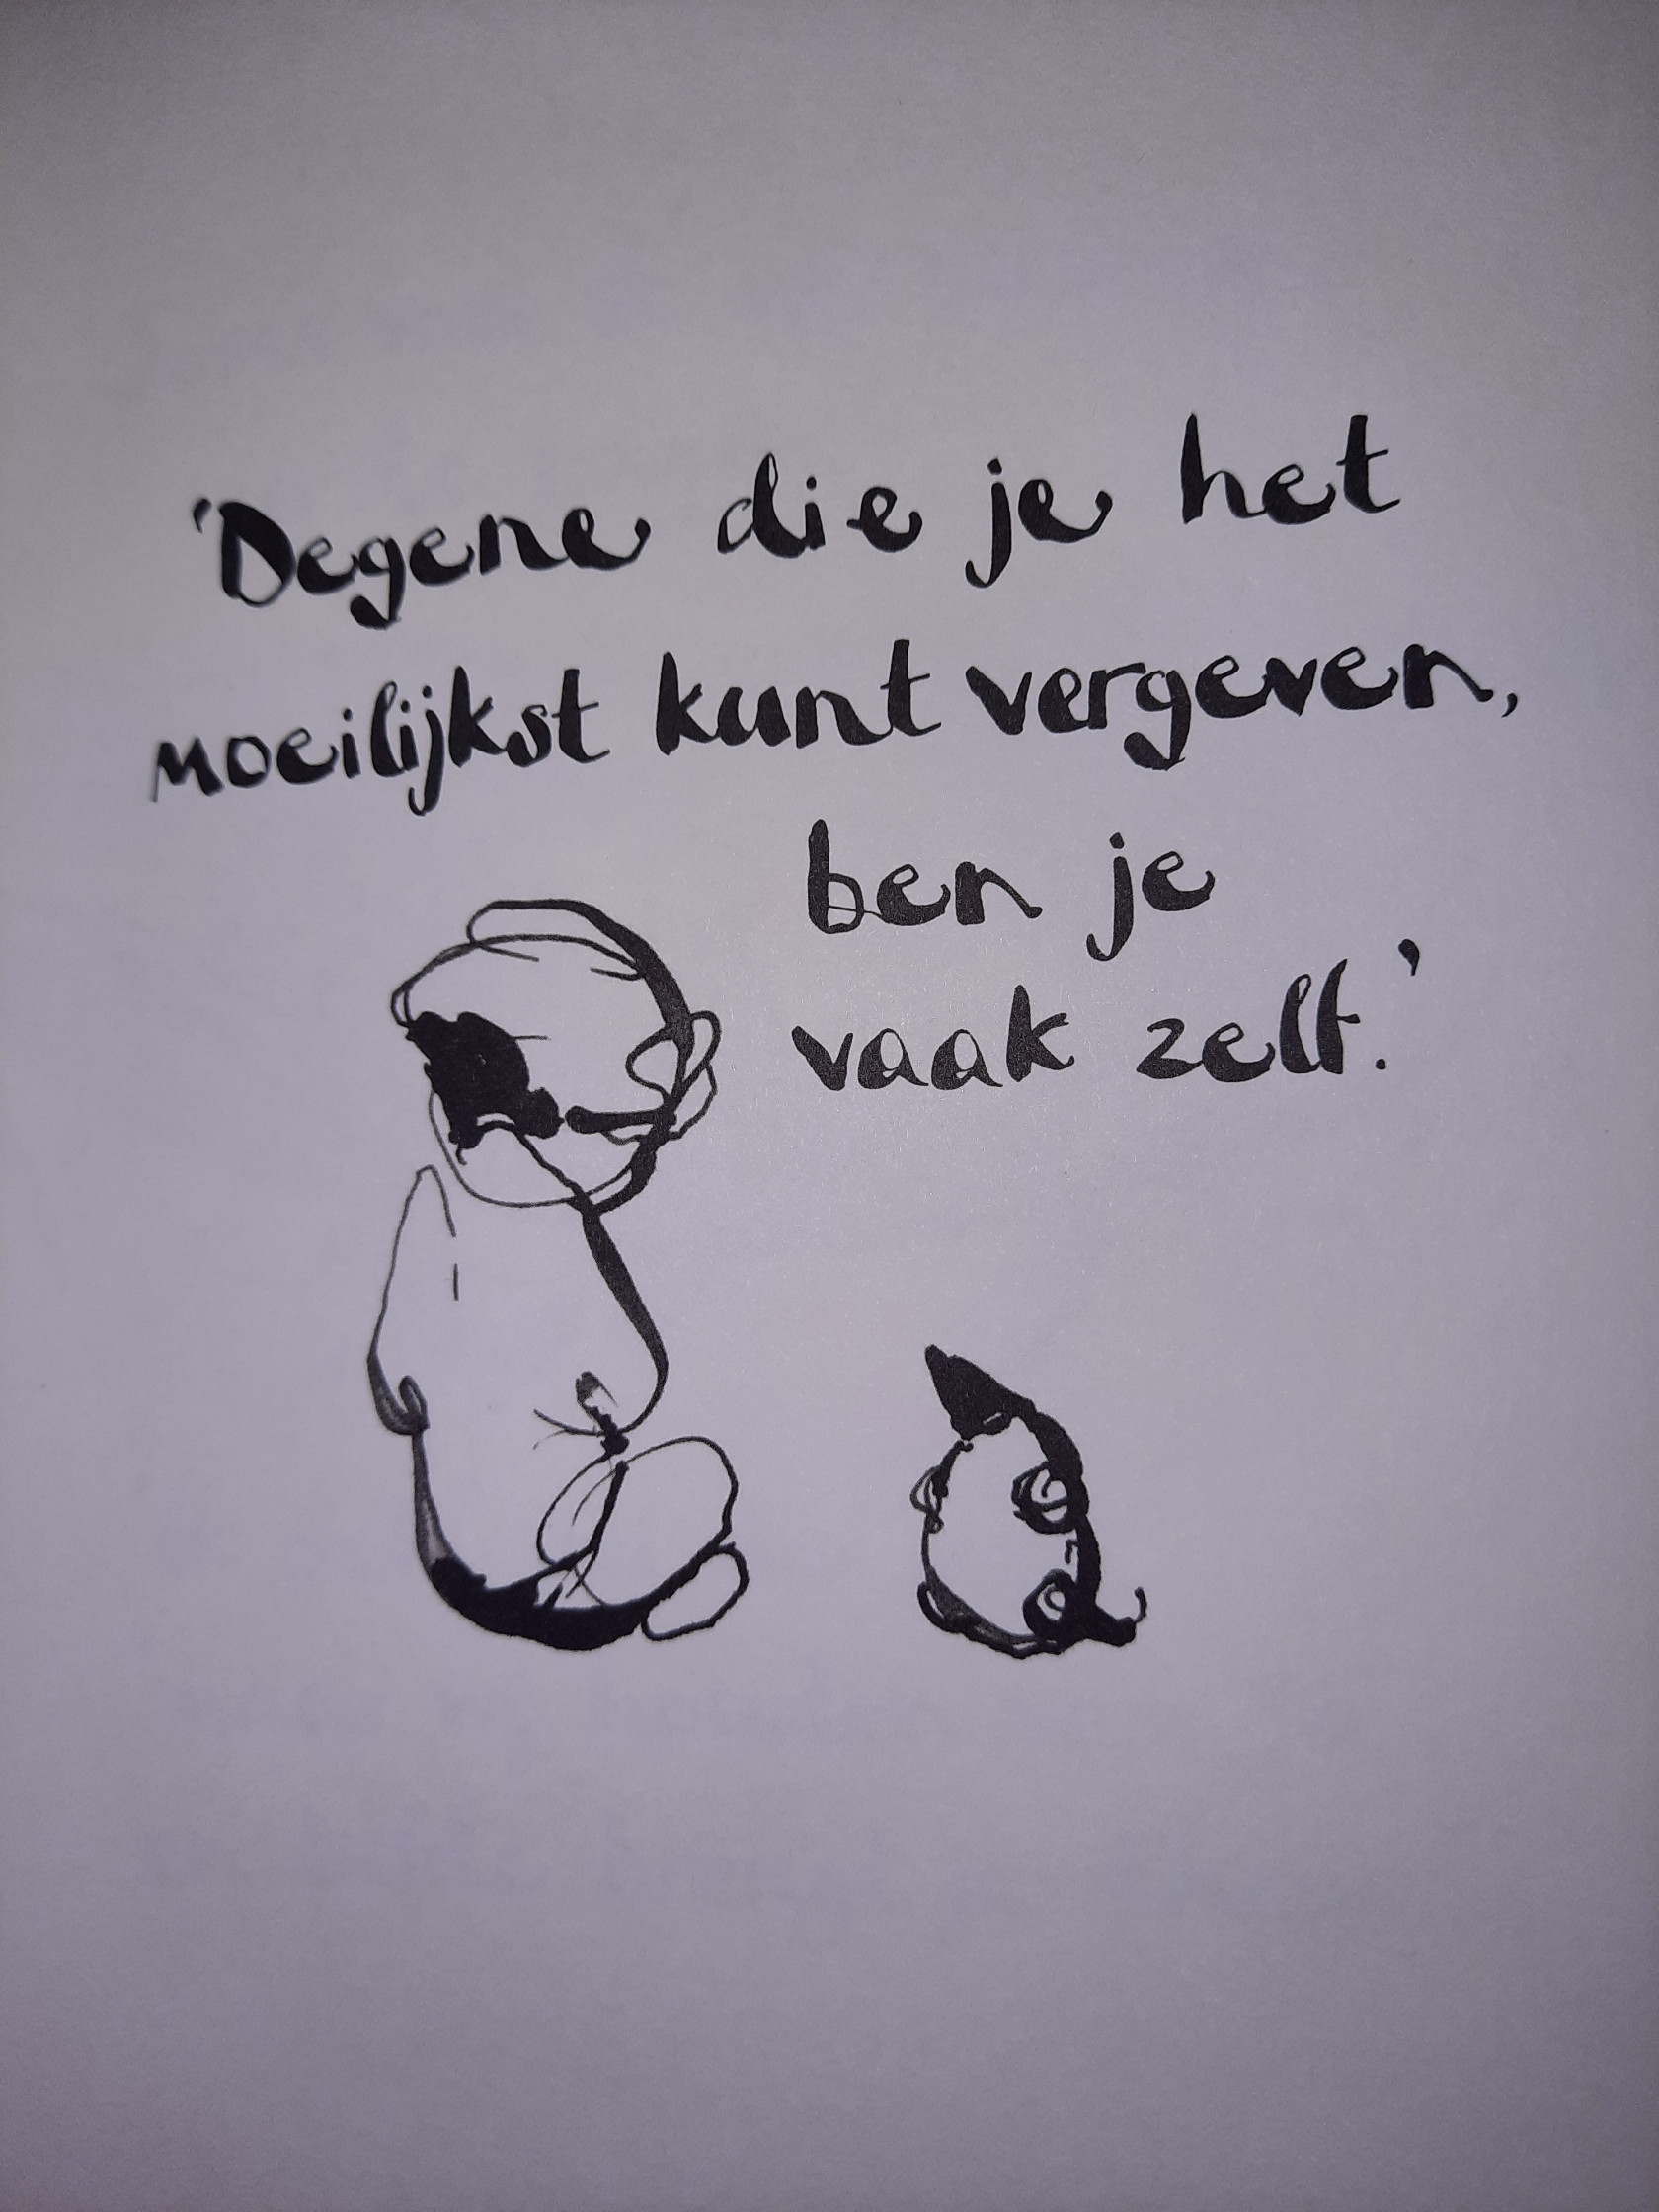 'Degene die je het
moeilijkst kunt vergeven,
ben je
vaak zelf.'